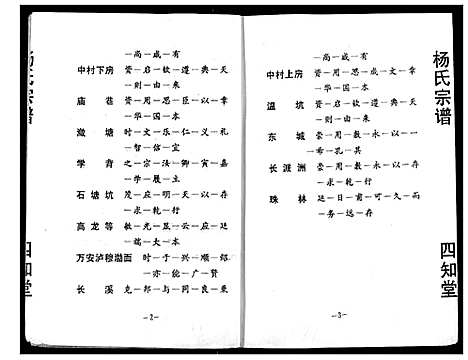 杨氏宗谱
一尚一咸一有
中村下房 资一启一钦一遵一典一天
一则一由一来
庙巷 资一用一思一臣一以一幸
一华一国一本
墩塘 时一文一乐一仁一义一礼
一智一信一宜
学背 之一宗一法一卿一寅一嘉
一学一履一主
石塘坑 茂一应一明一天一以一存
一求一乾一行
高龙等 敏一光一显一云一应一廷
一端一大一本
万安泸穆渤面 时一于一兴一顺一绍
一亦一能一广一贤
长溪 克一邦一与一同一良一秉
—2—
一尚一咸一有
中村上房 资一用一思一成一文一幸
一华一国一本
温坑 资一用一思一成一典一天
一则一由一来
东城 崇一用一敷一永一以一一
一希一孔一其
长渡洲 崇一用一敷一永一以一存
一求一乾一行
珠林 廷一日一前一可一久一而
一务一远一存
—3—
杨氏宗谱
四知堂
四知堂